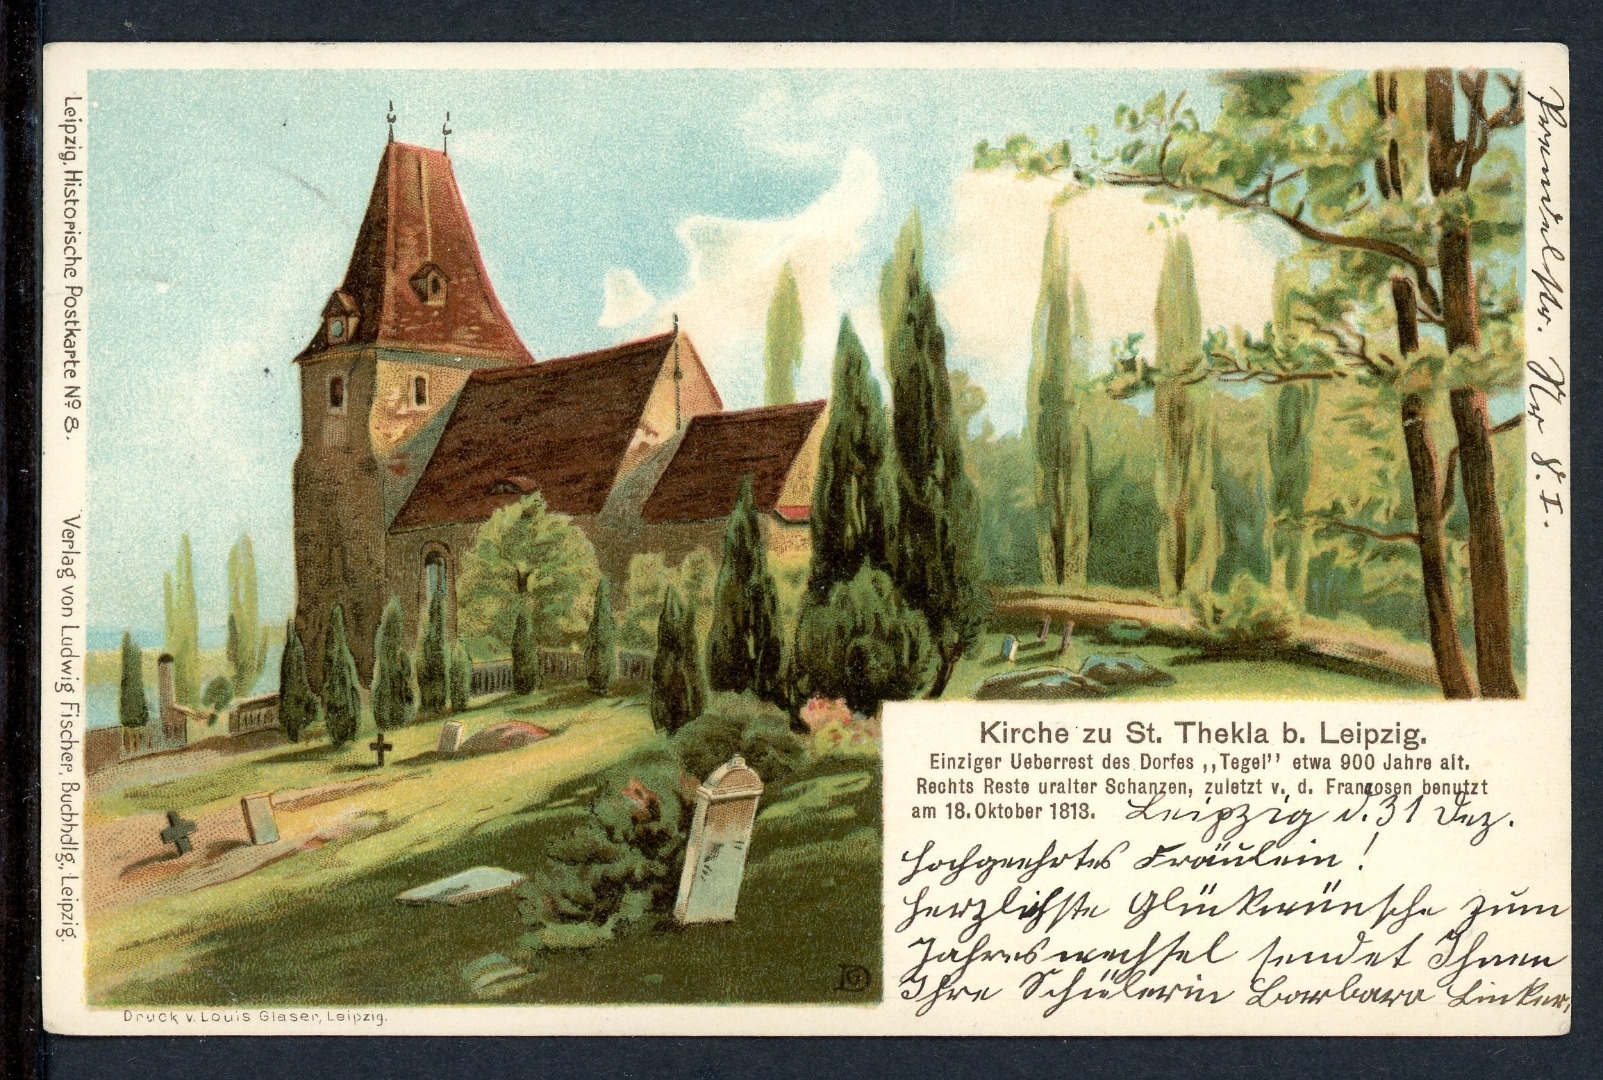 Leipzig, Historische Postkarte No 8.
Verlag von Ludwig Fischer, Buchhdlg., Leipzig.
Kirche zu St. Thekla b. Leipzig.
Einziger Ueberrest des Dorfes „Tegel” etwa 900 Jahre alt.
Rechts Reste uralter Schanzen, zuletzt v. d. Franzosen benutzt
am 18. Oktober 1813.
Leipzig d. 31 Dez.
Hochgeehrtes Fräulein!
Herzlichste Glückwünsche zum
Jahreswechsel sendet Ihnen
Ihre Schülerin Barbara Linker,
Nr 8. I.
Druck v. Louis Glaser, Leipzig.